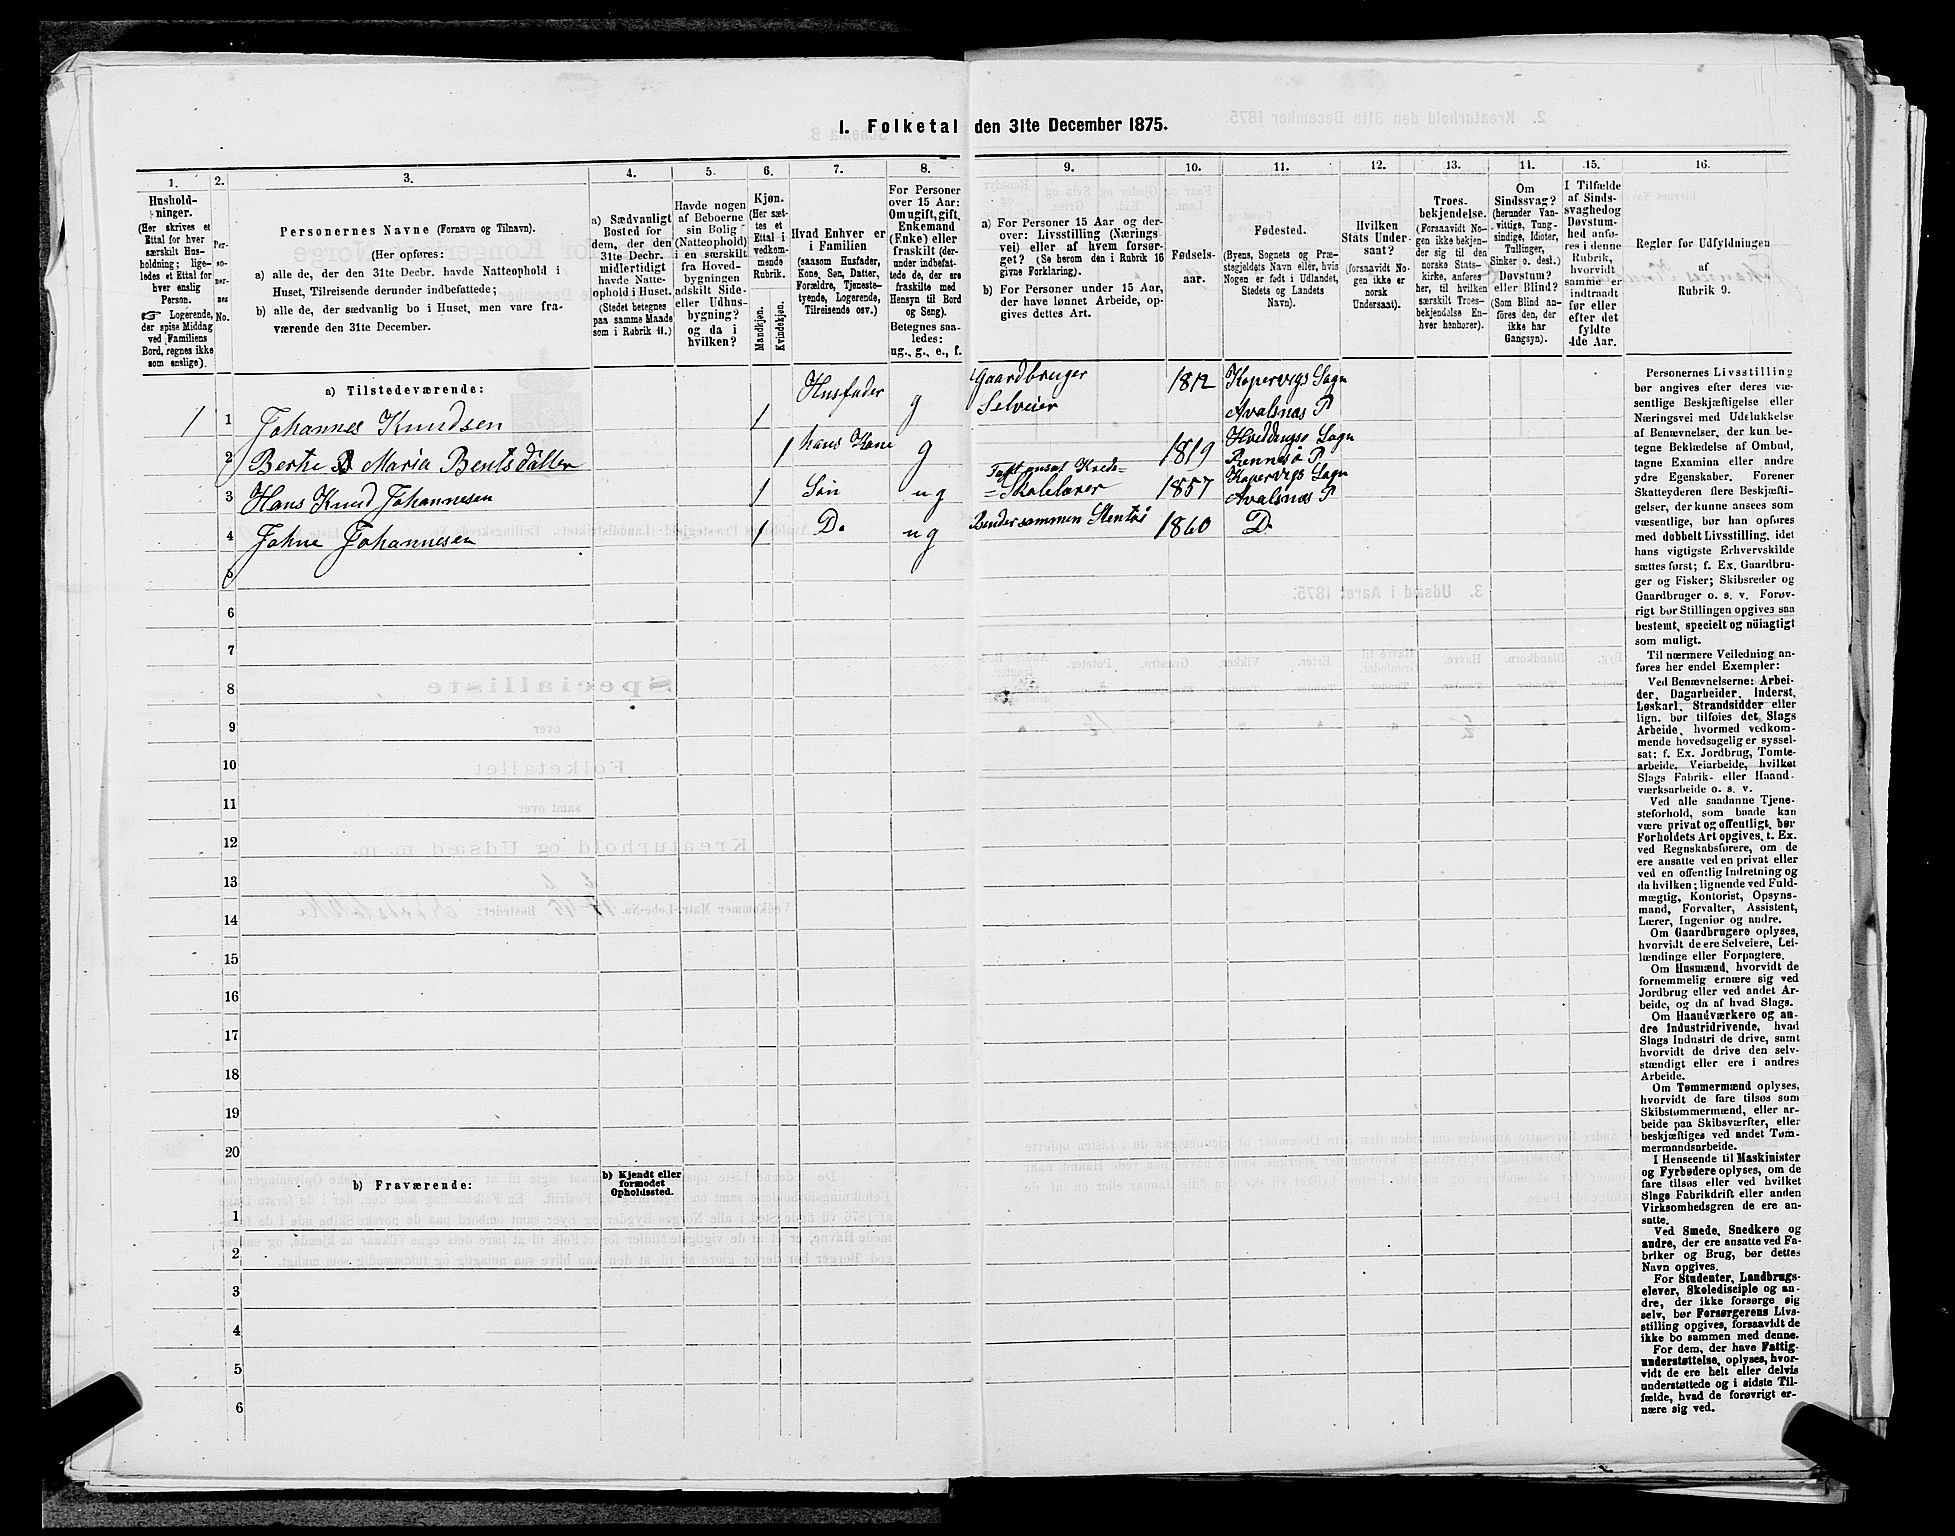 I. Folketal den 31te December 1875.
1. 2. 3. 4. 5. 6. 7. 8. 9. 10. 11. 12. 13. 14. 15. 16.
Hushold-
ninger.
(Her skrives et
Ettal for hver
særskilt Hus-
holdning; lige-
ledes et Ettal for
hver enslig
Person.
☞ Logerende,
der spise Middag
ved Familiens
Bord, regnes ikke
som enslige).
Per-
so-
ner-
nes
No.
Personernes Navne (Fornavn og Tilnavn).
(Her opføres:
a) alle de, der den 31te Decbr. havde Natteophold i
Huset, Tilreisende derunder indbefattede;
b) alle de, der sædvanlig bo i Huset, men vare fra-
værende den 31te December.
a) Sædvanligt
Bosted for
dem, der den
31te Decbr.
midlertidigt
havde Natte-
ophold i Huset.
(Stedet betegnes
paa samme Maade
som i Rubrik 11.)
Havde nogen
af Beboerne
sin Bolig
(Natteophold)
i en særskilt
fra Hoved-
bygningen
adskilt Side-
eller Udhus-
bygning?
og da i
hvilken?
Kjøn.
(Her sæt-
tes et
Ettal i
vedkom-
mende
Rubrik.
Mandkjøn.
Kvindekjøn.
Hvad Enhver er
i Familien
(saasom Husfader,
Kone, Søn, Datter,
Forældre, Tjeneste-
tyende, Logerende,
Tilreisende osv.)
For Personer
over 15 Aar:
Om ugift, gift,
Enkemand
(Enke) eller
fraskilt (der-
under indbefat-
tede de, der ere
fraskilte med
Hensyn til Bord
og Seng).
Betegnes saa-
ledes:
ug., g., e., f.
a) For Personer 15 Aar og der-
over: Livsstilling (Nærings-
vei) eller af hvem forsør-
get? (Se herom den i Rubrik 16
givne Forklaring).
b) For Personer under 15 Aar,
der have lønnet Arbeide, op-
gives dettes Art.
Fødsels-
aar.
Fødested.
(Byens, Sognets og Præ-
stegjeldets Navn eller, hvis
Nogen er født i Udlandet,
Stedets og Landets
Navn).
Hvilken
Stats Under-
saat?
(forsaavidt No-
gen ikke er
norsk
Undersaat).
Troes-
bekjendelse.
(Forsaavidt No-
gen ikke bekjen-
der sig til den
norske Stats-
kirke, anføres
her, til hvilken
særskilt Troes-
bekjendelse En-
hver henhører).
Om
Sindssvag?
(herunder Van-
vittige, Tung-
sindige, Idioter,
Tullinger,
Sinker o. desl.)
Døvstum?
eller Blind?
(Som Blind an-
føres den, der
ikke har
Gangsyn).
I Tilfælde
af Sinds-
svaghed og
Døvstum-
hed anfø-
res i denne
Rubrik,
hvorvidt
samme er
indtraadt
før eller
efter det
fyldte
4de Aar.
Regler for Udfyldningen
af
Rubrik 9.
a) Tilstedeværende:
1 1 Johannes Knudsen 1 Husfader g Gaardbruger Selveier 1812 Kopervigs Sogn Avalsnæs P
2 Berthe Maria Bentsdatter 1 hans Kone g 1819 Hvidingsø Sogn Rennesø P
3 Hans Knud Johannesen 1 Søn ug Skolelærer 1857 Kopervigs Sogn Avalsnæs P
4 Johne Johannesen 1 Do ug 1860 Do
5
6
7
8
9
10
11
12
13
14
15
16
17
18
19
20
b) Fraværende:
b) Kjendt eller
formodet
Opholdssted.
1
2
3
4
5
6
Personernes Livsstilling
bør angives efter deres væ-
sentlige Beskjæftigelse eller
Næringsvei med Udelukkelse
af Benævnelser, der kun be-
tegne Beklædelse af Ombud,
tagne Examina eller andre
ydre Egenskaber. Forener
Skatteyderen flere Beskjæfti-
gelser, der kunne ansees som
væsentlige, bør han opføres
med dobbelt Livsstilling, idet
hans vigtigste Erhvervskilde
sættes først; f. Ex. Gaardbru-
ger og Fisker; Skibsreder og
Gaardbruger o. s. v. Forøv-
rigt bør Stillingen opgives saa
bestemt, specielt og nöiagtigt
som muligt.
Til nærmere Veiledning an-
føres her endel Exempler:
Ved Benævnelserne: Arbei-
der, Dagarbeider, Inderst,
Løskarl, Strandsidder eller
lign. bør tilføies det Slags
Arbeide, hvormed vedkom-
mende hovedsagelig er syssel-
sat; f. Ex. Jordbrug, Tomte-
arbeide, Veiarbeide, hvilket
Slags Fabrik- eller Haand-
værksarbeide o. s. v.
Ved alle saadanne Tjene-
steforhold, som baade kan
være privat og offentligt, bør
Forholdets Art opgives, t. Ex.
ved Regnskabsførere, om de
ere ansatte ved en privat eller
ved en offentlig Indretning og
da hvilken; lignende ved Fuld-
mægtig, Kontorist, Opsyns-
mand, Forvalter, Assistent,
Lærer, Ingeniør og andre.
Om Gaardbrugere oplyses,
hvorvidt de ere Selveiere, Lei-
lændinge eller Forpagtere.
Om Husmænd, hvorvidt de
fornemmelig ernære sig ved
Jordbrug eller ved andet Ar-
beide, og da af hvad Slags.
Om Haandværkere og an-
dre Industridrivende, hvad
Slags Industri de drive, samt
hvorvidt de drive den selv-
stændigt eller ere i andres
Arbeide.
Om Tømmermænd oplyses,
hvorvidt de fare tilsøs som
Skibstømmermænd, eller ar-
beide paa Skibsværfter, eller
beskjæftiges ved andet Tøm-
mermandsarbeide.
I Henseende til Maskinister
og Fyrbødere oplyses, om de
fare tilsøs eller ved hvilket
Slags Fabrikdrift eller anden
Virksomhedsgren de ere an-
satte.
Ved Smede, Snedkere og
andre, der ere ansatte ved Fa-
briker og Brug, bør dettes
Navn opgives.
For Studenter, Landbrugs-
elever, Skoledisciple og an-
dre, der ikke forsørge sig
selv, bør Forsørgerens Livs-
stilling opgives, forsaavidt de
ikke bo sammen med denne.
For dem, der have Fattig-
understøttelse, oplyses, hvor-
vidt de ere helt eller delvis
understøttede og i sidste Til-
fælde, hvad de forøvrigt er-
nære sig ved.